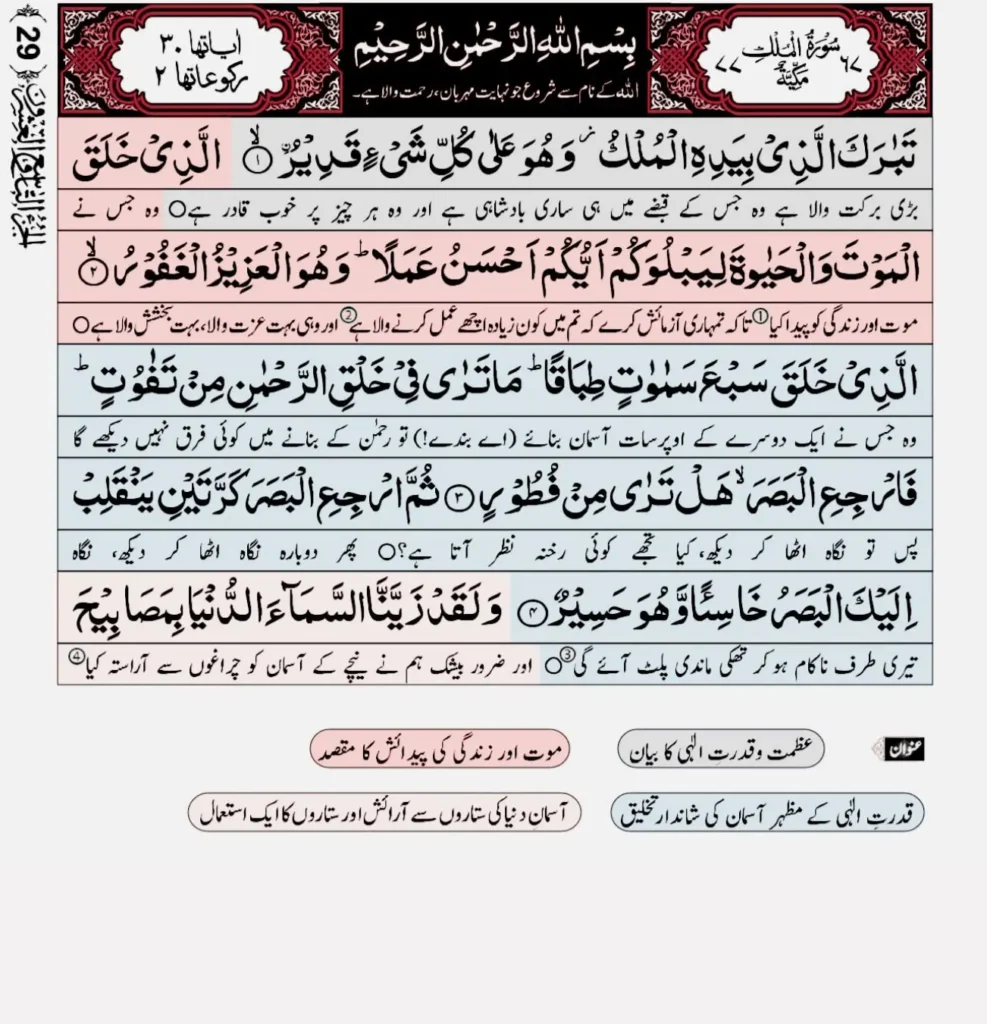 29
الجزء التاسع والعشرون
سُوْرَةُ الْمُلْكِ
٦٧ مَكِّيَّةٌ ٧٧
بِسْمِ اللّٰهِ الرَّحْمٰنِ الرَّحِيْمِ
اللہ کے نام سے شروع جو نہایت مہربان، رحمت والا ہے۔
اٰیاتها ٣٠
رکوعاتها ٢
تَبٰرَكَ الَّذِیْ بِیَدِهِ الْمُلْكُ ٘ وَ هُوَ عَلٰى كُلِّ شَیْءٍ قَدِیْرُۙ ﴿۱﴾ الَّذِیْ خَلَقَ
بڑی برکت والا ہے وہ جس کے قبضے میں ہی ساری بادشاہی ہے اور وہ ہر چیز پر خوب قادر ہے○ وہ جس نے
الْمَوْتَ وَ الْحَیٰوةَ لِیَبْلُوَكُمْ اَیُّكُمْ اَحْسَنُ عَمَلًاؕ وَ هُوَ الْعَزِیْزُ الْغَفُوْرُۙ ﴿۲﴾
موت اور زندگی کو پیدا کیا① تاکہ تمہاری آزمائش کرے کہ تم میں کون زیادہ اچھے عمل کرنے والا ہے② اور وہی بہت عزت والا، بہت بخشش والا ہے○
الَّذِیْ خَلَقَ سَبْعَ سَمٰوٰتٍ طِبَاقًاؕ مَا تَرٰى فِیْ خَلْقِ الرَّحْمٰنِ مِنْ تَفٰوُتٍؕ
وہ جس نے ایک دوسرے کے اوپر سات آسمان بنائے (اے بندے!) تو رحمٰن کے بنانے میں کوئی فرق نہیں دیکھے گا
فَارْجِعِ الْبَصَرَۙ هَلْ تَرٰى مِنْ فُطُوْرٍ ﴿۳﴾ ثُمَّ ارْجِعِ الْبَصَرَ كَرَّتَیْنِ یَنْقَلِبْ
پس تو نگاہ اٹھا کر دیکھ، کیا تجھے کوئی رخنہ نظر آتا ہے؟○ پھر دوبارہ نگاہ اٹھا کر دیکھ، نگاہ
اِلَیْكَ الْبَصَرُ خَاسِئًا وَّ هُوَ حَسِیْرٌ ﴿۴﴾ وَ لَقَدْ زَیَّنَّا السَّمَآءَ الدُّنْیَا بِمَصَابِیْحَ
تیری طرف ناکام ہو کر تھکی ماندی پلٹ آئے گی③○ اور ضرور بیشک ہم نے نیچے کے آسمان کو چراغوں سے آراستہ کیا④
عنوان
عظمت و قدرتِ الٰہی کا بیان
موت اور زندگی کی پیدائش کا مقصد
قدرتِ الٰہی کے مظہر آسمان کی شاندار تخلیق
آسمانِ دنیا کی ستاروں سے آرائش اور ستاروں کا ایک استعمال